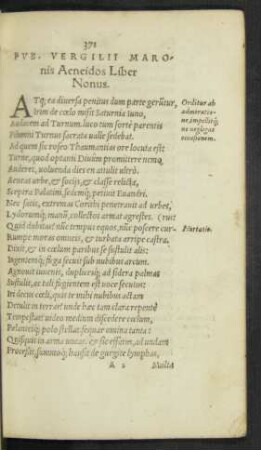 371
PVB. VERGILII MARO-
nis Aeneidos Liber
Nonus.
ATq; ea diuersa penitus dum parte gerũtur,
Irim de cœlo misit Saturnia iuno,
Audacem ad Turnum. luco tum forte parentis
Pilumni Turnus sacrata ualle sedebat.
Ad quem sic roseo Thaumantias ore locuta est
Turne, quod optanti Diuûm promittere nemo
Auderet, uoluenda dies en attulit ultrò.
Aeneas urbe, & socijs, & classe relicta,
Sceptra Palatini, sedemq; petiuit Euandri.
Nec satis, extremas Corithi penetrauit ad urbes,
Lydorumq; manũ, collectos armat agrestes. (rus?
Quid dubitas? nũc tempus equos, nũc poscere cur-
Rumpe moras omneis, & turbata arripe castra.
Dixit, & in cœlum paribus se sustulit alis:
Ingentemq; fuga secuit sub nubibus arcum.
Agnouit iuuenis, duplicesq; ad sidera palmas
Sustulit, ac tali fugientem est uoce secutus:
Iri decus cœli, quis te mihi nubibus actam
Detulit in terras? unde hæc tam clara repentè
Tempestas? uideo medium discedere cœlum,
Palanteisq; polo stellas. sequar omina tanta:
Quisquis in arma uocas. & sic effatus, ad undam
Processit, summoq; hausit de gurgite lymphas,
A 2 Multa
Orditur ab
admiratio-
ne
occasionem.
Hortatio.